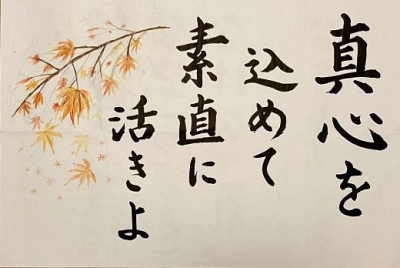 真心を
込めて
素直に
活きよ